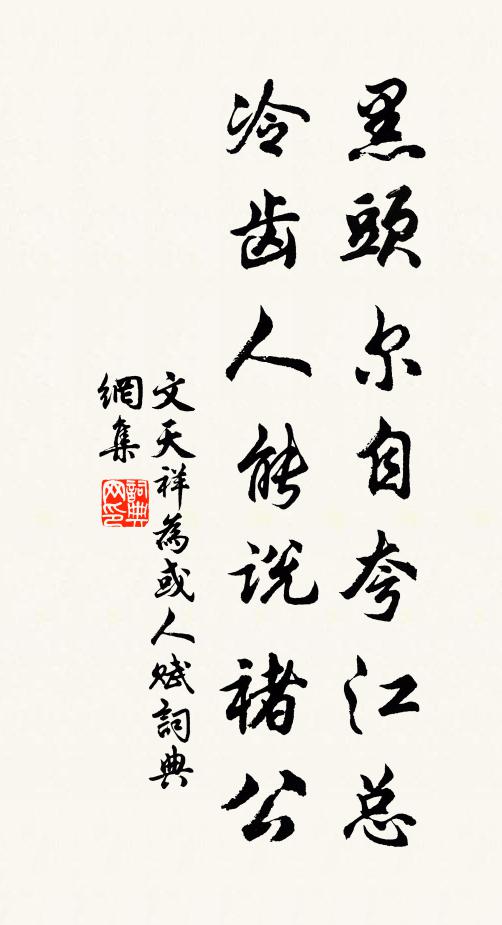 黑頭尔自夸江总
冷齿人能说褚公
文天祥為或人赋詞典
網集
詞典
网印